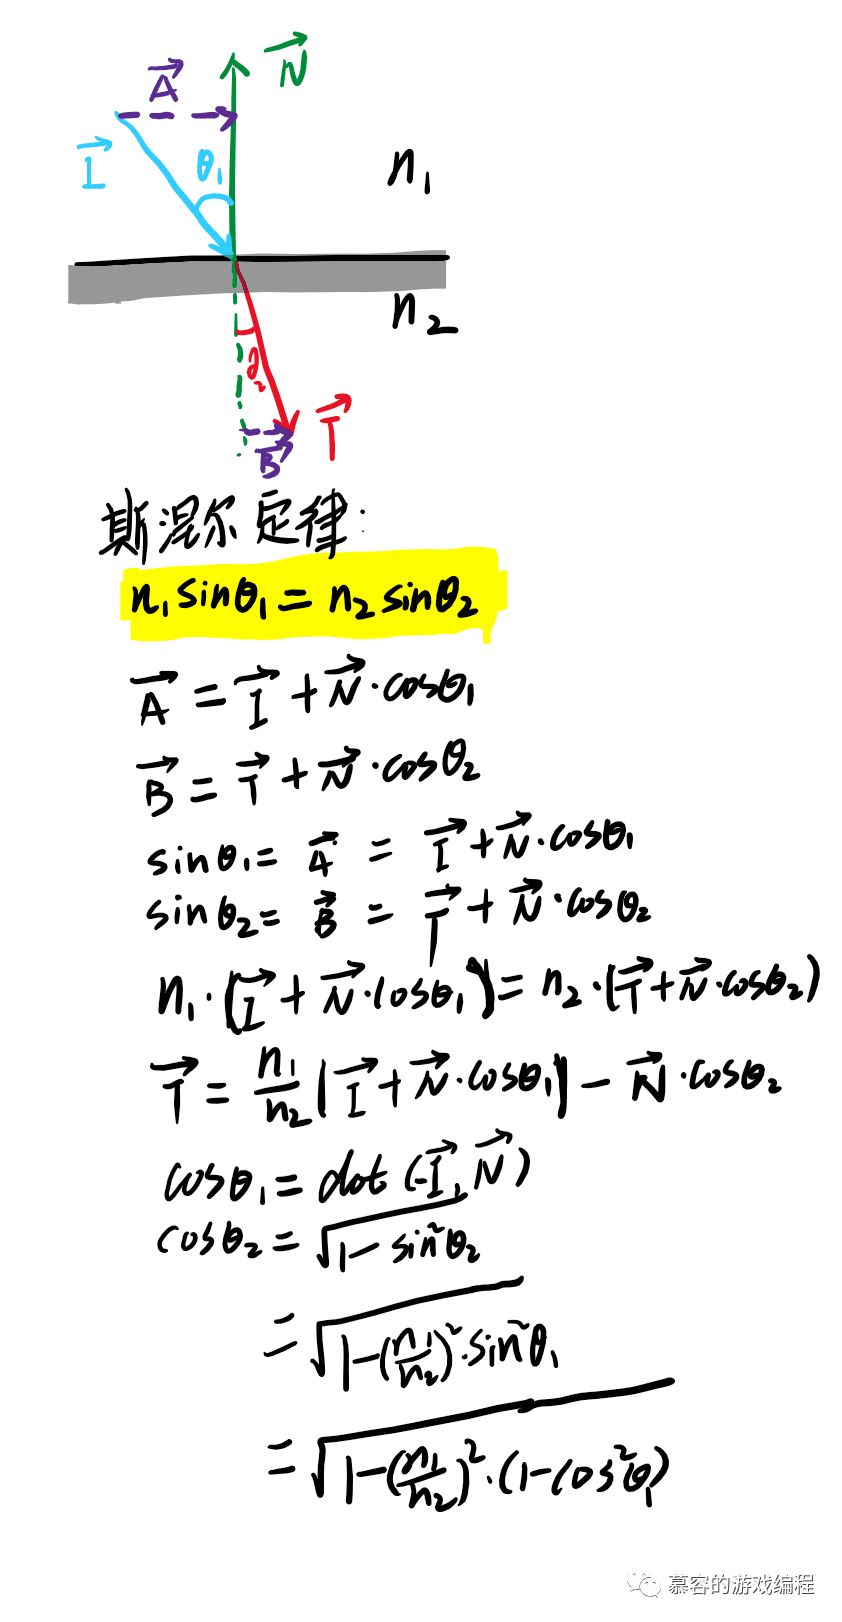 A⃗ N⃗
I⃗ θ₁ n₁
n₂
θ₂ T⃗
B⃗
斯涅尔定律:
n₁sinθ₁=n₂sinθ₂
A⃗ = I⃗ + N⃗·cosθ₁
B⃗ = T⃗ + N⃗·cosθ₂
sinθ₁ = A⃗ = I⃗ + N⃗·cosθ₁
sinθ₂ = B⃗ = T⃗ + N⃗·cosθ₂
n₁·(I⃗ + N⃗·cosθ₁) = n₂·(T⃗ + N⃗·cosθ₂)
T⃗ = n₁/n₂ (I⃗ + N⃗·cosθ₁) − N⃗·cosθ₂
cosθ₁ = dot(-I⃗, N⃗)
cosθ₂ = √(1 − sin²θ₂)
= √(1−(n₁/n₂)²·sin²θ₁)
= √(1−(n₁/n₂)²·(1−cos²θ₁))
慕容的游戏编程